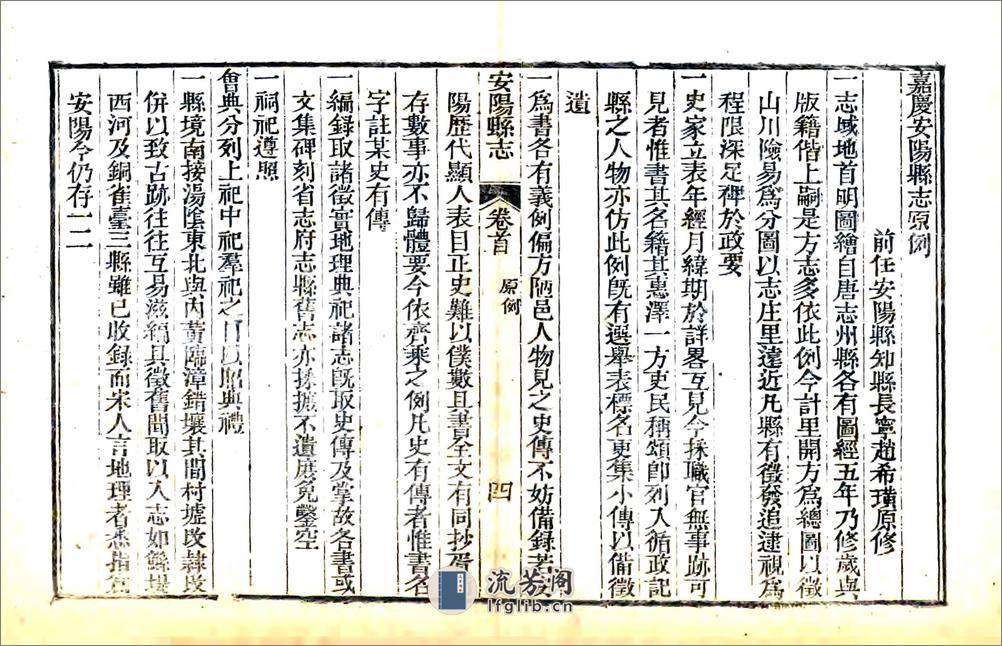 嘉慶安陽縣志原例
前任安陽縣知縣長寧趙希璜原修
一志域地首明圖繪自唐志州縣各有圖經五年乃修歲與
版籍偕上嗣是方志多依此例今計里開方爲總圖以徵
山川險易爲分圖以志庄里遠近凡縣有徵發追逮視爲
程限深足裨於政要
一史家立表年經月緯期於詳畧互見今採職官無事跡可
見者惟書其名籍其惠澤一方吏民稱頌卽列入循政記
縣之人物亦仿此例旣有選舉表標名更集小傳以備徵
遺
一爲書各有義例偏方陋邑人物見之史傳不妨備錄若安
安陽縣志
卷首
原例
四
陽歷代顯人表目正史難以僕數且書全文有同抄胥
存數事亦不歸體要今依齊乘之例凡史有傳者惟書名
字註某史有傳
一編錄取諸徵實地理典祀諸志旣取史傳及掌故各書或
文集碑刻省志府志縣舊志亦捃摭不遺庶免鑿空
一祠祀遵照
會典分列上祀中祀羣祀之目以昭典禮
一縣境南接湯陰東北與內黃臨漳錯壤其間村墟改隸改
併以致古跡往往互易茲編其徵舊聞取以入志如鯀堤
西河及銅雀臺三縣雖已收錄而宋人言地理者悉指爲
安陽今仍存一二
流芳閣
lfglib.cn